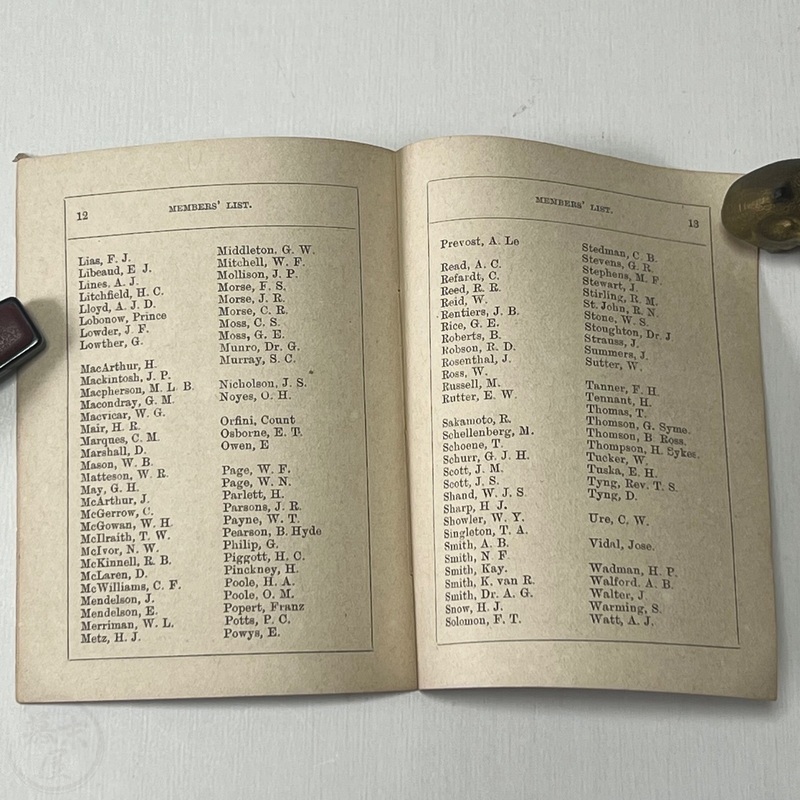 12
MEMBERS' LIST.
Lias, F. J.
Libeaud, E J.
Lines, A. J.
Litchfield, H. C.
Lloyd, A. J. D.
Lobonow, Prince
Lowder, J. F.
Lowther, G.
MacArthur, H.
Mackintosh, J. P.
Macpherson, M. L. B.
Macondray, G. M.
Macvicar, W. G.
Mair, H. R.
Marques, C. M.
Marshall, D.
Mason, W. B.
Matteson, W. R.
May, G. H.
McArthur, J.
McGerrow, C.
McGowan, W. H.
McIlraith, T. W.
McIvor, N. W.
McKinnell, R. B.
McLaren, D.
McWilliams, C. F.
Mendelson, J.
Mendelson, E.
Merriman, W. L.
Metz, H. J.
Middleton, G. W.
Mitchell, W. F.
Mollison, J. P.
Morse, F. S.
Morse, J. R.
Morse, C. R.
Moss, C. S.
Moss, G. E.
Munro, Dr. G.
Murray, S. C.
Nicholson, J. S.
Noyes, O. H.
Orfini, Count
Osborne, E. T.
Owen, E
Page, W. F.
Page, W. N.
Parlett, H.
Parsons, J. R.
Payne, W. T.
Pearson, B. Hyde
Philip, G.
Piggott, H. C.
Pinckney, H.
Poole, H. A.
Poole, O. M.
Popert, Franz
Potts, P. C.
Powys, E.
MEMBERS' LIST.
13
Prevost, A. Le
Read, A. C.
Refardt, C.
Reed, R. R.
Reid, W.
Rentiers, J. B.
Rice, G. E.
Roberts, B.
Robson, R. D.
Rosenthal, J.
Ross, W.
Russell, M.
Rutter, E. W.
Sakamoto, R.
Schellenberg, M.
Schoene, T.
Schurr, G. J. H.
Scott, J. M.
Scott, J. S.
Shand, W. J. S
Sharp, H J.
Showler, W. Y.
Singleton, T. A.
Smith, A. B.
Smith, N F
Smith, Kay.
Smith, K. van R.
Smith, Dr. A. G.
Snow, H. J.
Solomon, F. T.
Stedman, C. B.
Stevens, G. R.
Stephens, M. F.
Stewart, J.
Stirling, R. M.
St. John, R. N.
Stone, W. S.
Stoughton, Dr. J
Strauss, J.
Summers, J.
Sutter, W.
Tanner, F. H.
Tennant, H.
Thomas, T.
Thomson, G. Syme.
Thomson, B. Ross.
Thompson, H. Sykes.
Tucker, W.
Tuska, E. H.
Tyng, Rev. T. S.
Tyng, D.
Ure, C. W.
Vidal, Jose.
Wadman, H. P.
Walford, A. B.
Walter, J.
Warming, S.
Watt, A. J.